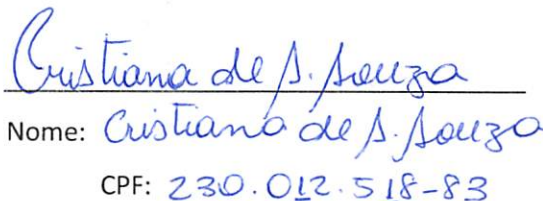 Cristiana de S. Souza
Nome: Cristiana de S. Souza
CPF: 230.012.518-83